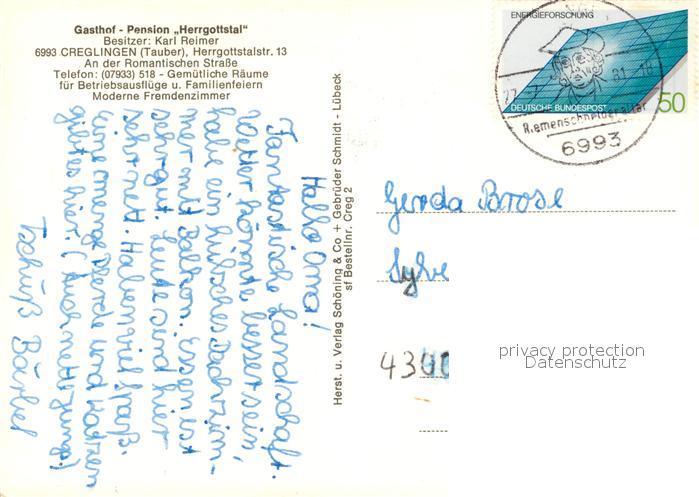 Gasthof - Pension „Herrgottstal"
Besitzer: Karl Reimer
6993 CREGLINGEN (Tauber), Herrgottstalstr. 13
An der Romantischen Straße
Telefon: (07933) 518 - Gemütliche Räume
für Betriebsausflüge u. Familienfeiern
Moderne Fremdenzimmer
Hallo Oma!
Fantastische Landschaft.
Wetter könnte besser sein,
habe ein hübsches Dachzim-
mer mit Balkon. Essen ist
sehr gut. Leute sind hier
sehr nett. Haben viel Spaß.
eine menge Pferde und Katzen
gibt es hier. (Auch nette Jungs)
Tschüß Bärbel
Herst. u. Verlag Schöning & Co + Gebrüder Schmidt - Lübeck
sf Bestellnr. Creg 2
ENERGIEFORSCHUNG
DEUTSCHE BUNDESPOST
50
Riemenschneideraltar
6993
Gerda Brose
Sylve
43
privacy protection
Datenschutz